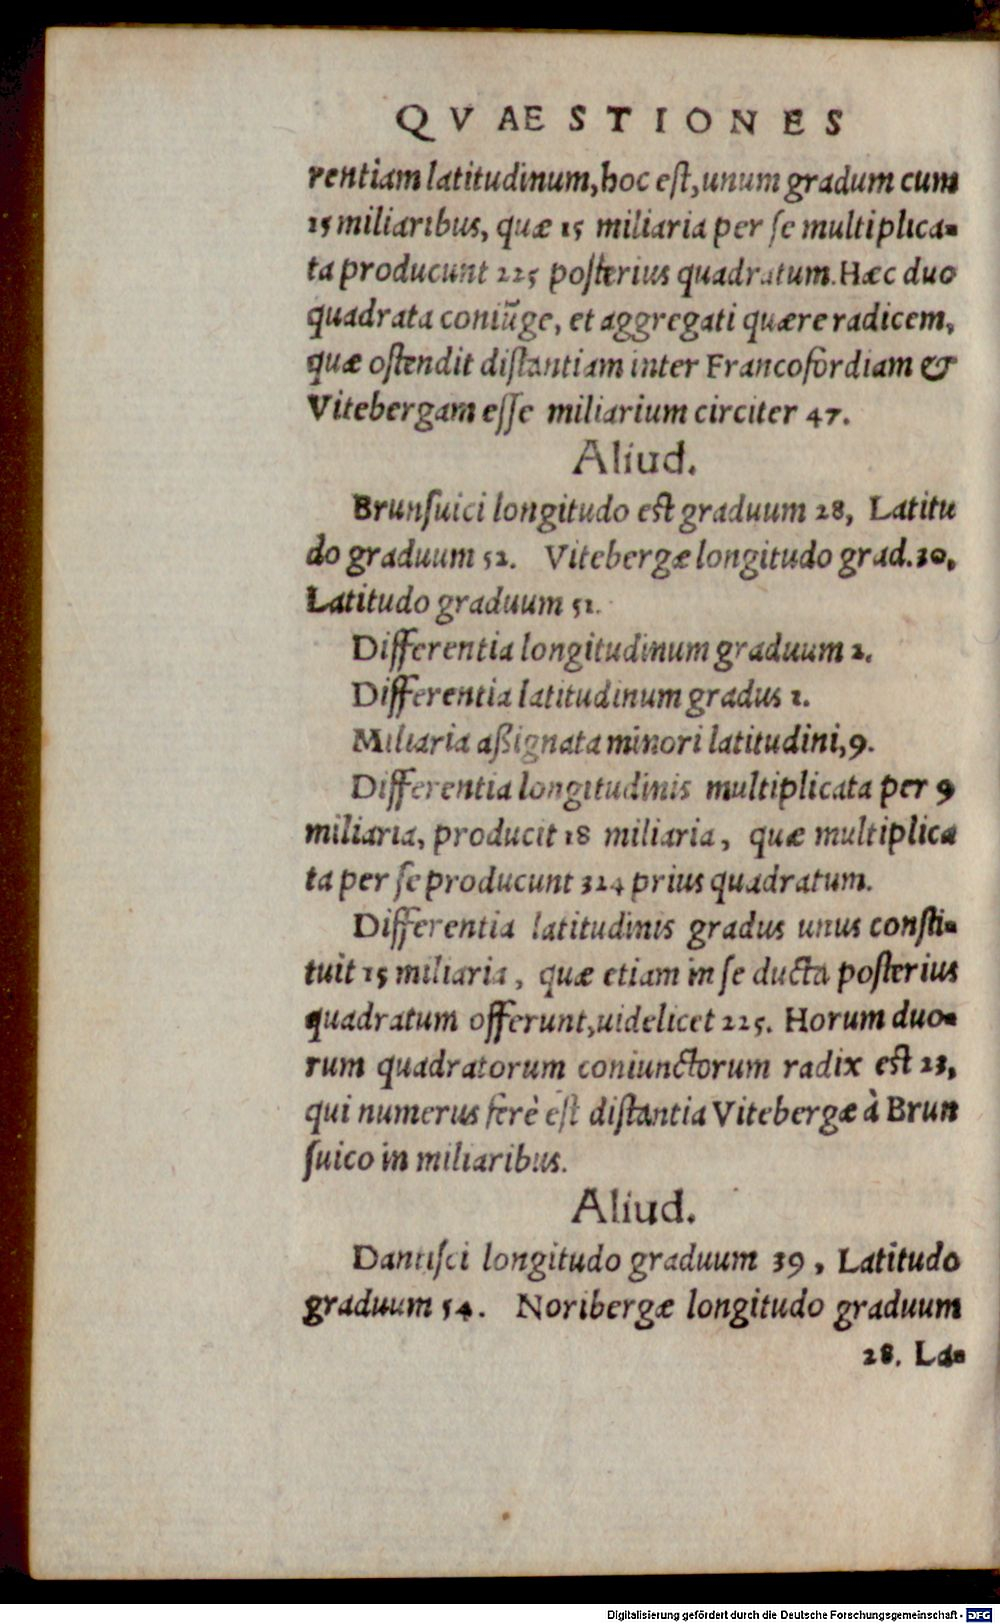 QVAESTIONES
rentiam latitudinum, hoc eſt, unum gradum cum
15 miliaribus, quæ 15 miliaria per ſe multiplica-
ta producunt 225 poſterius quadratum. Hæc duo
quadrata coniũge, et aggregati quære radicem,
quæ oſtendit diſtantiam inter Francofordiam &
Vitebergam eſſe miliarium circiter 47.
Aliud.
Brunſuici longitudo eſt graduum 28, Latitu
do graduum 52. Vitebergæ longitudo grad. 30,
Latitudo graduum 51.
Differentia longitudinum graduum 2.
Differentia latitudinum gradus 1.
Miliaria aßignata minori latitudini, 9.
Differentia longitudinis multiplicata per 9
miliaria, producit 18 miliaria, quæ multiplica
ta per ſe producunt 324 prius quadratum.
Differentia latitudinis gradus unus conſti-
tuit 15 miliaria, quæ etiam in ſe ducta poſterius
quadratum offerunt, uidelicet 225. Horum duo-
rum quadratorum coniunctorum radix eſt 23,
qui numerus ferè eſt diſtantia Vitebergæ à Brun
ſuico in miliaribus.
Aliud.
Dantiſci longitudo graduum 39, Latitudo
graduum 54. Noribergæ longitudo graduum
28. La-
Digitalisierung gefördert durch die Deutsche Forschungsgemeinschaft - DFG